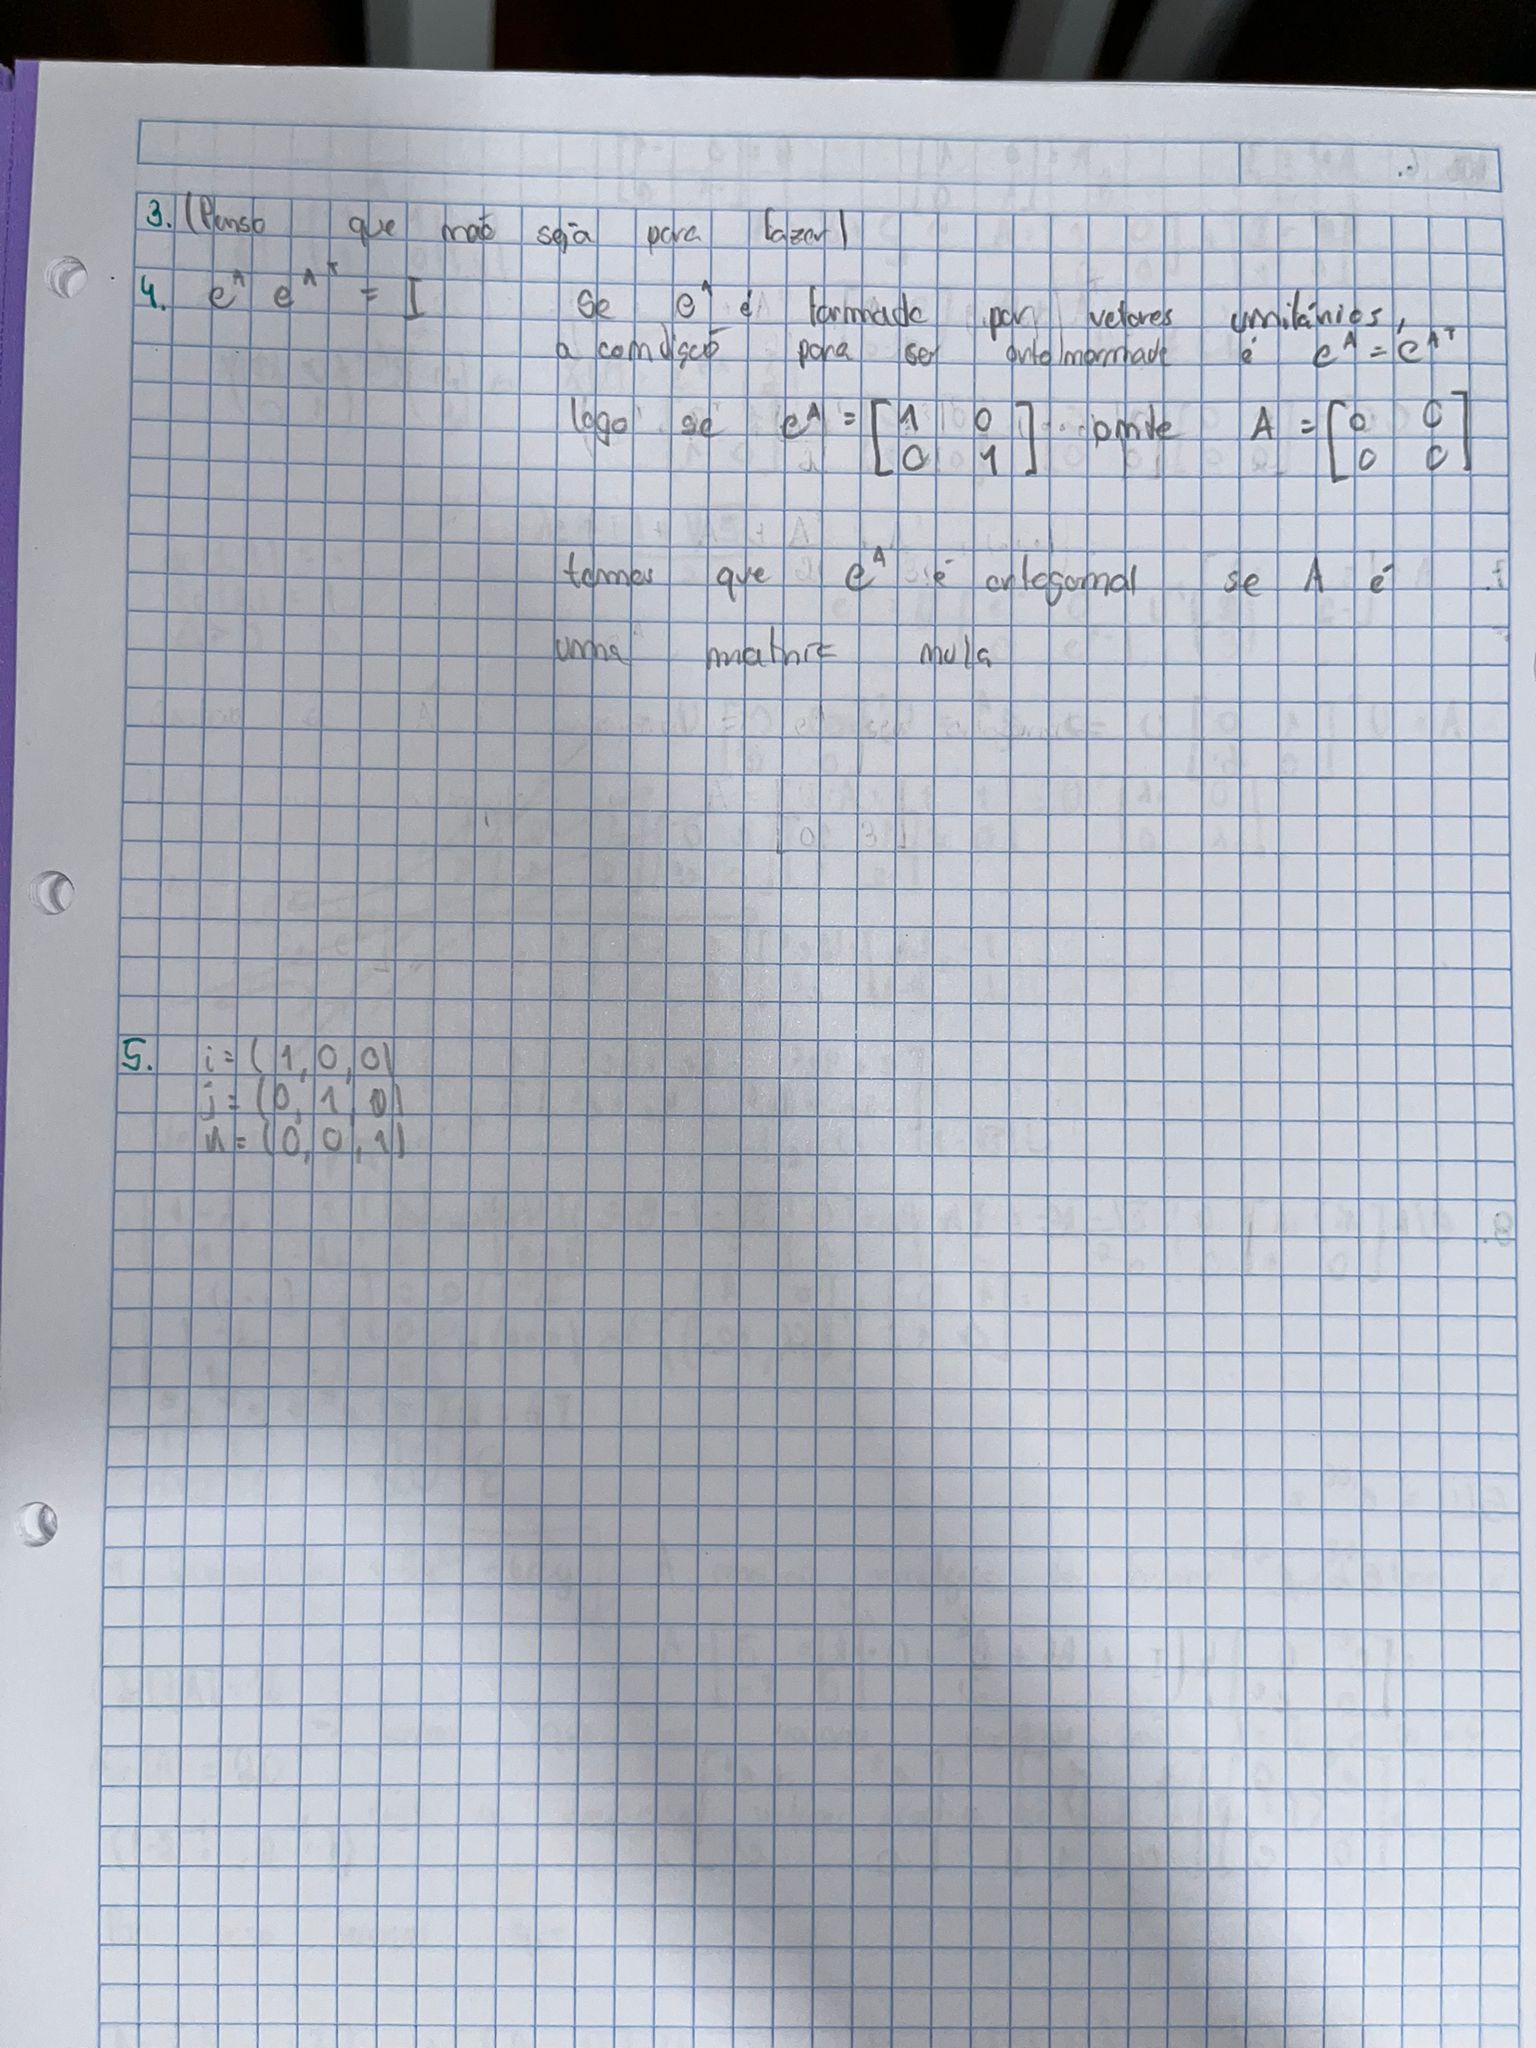 3. (Penso que não seja para fazer)
4. e^A e^A^T = I Se e^A é formado por vetores unitários,
a condição para ser ortonormado é e^A = e^A^T
logo se e^A = [1 0 0 1] onde A = [0 0 0 0]
temos que e^A é ortogonal se A é
uma matriz nula
5. i = (1, 0, 0)
j = (0, 1, 0)
k = (0, 0, 1)